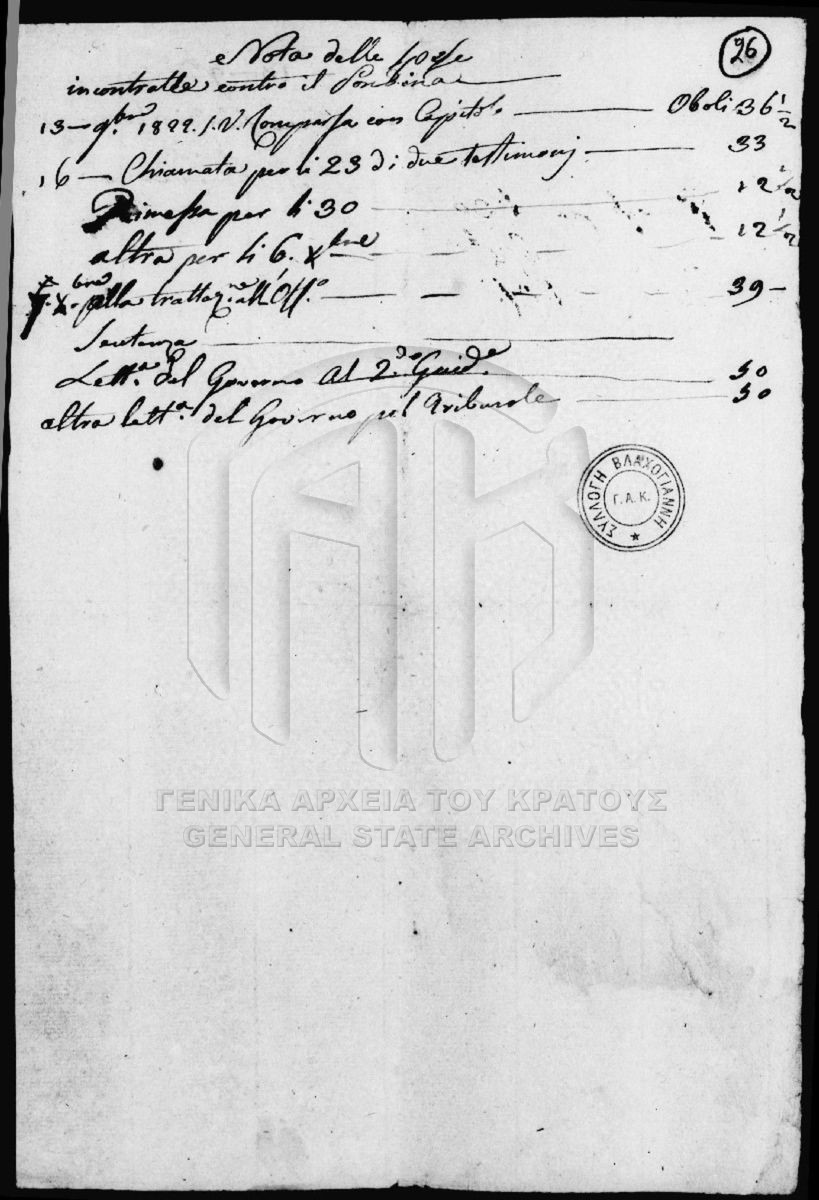 26
Nota delle spese
incontratte contro il
13 — 9bre 1822. S.V. Comparsa con Capitolo — Oboli 36 1/2
16 — Chiamata per li 23 di due testimonj — 33
Rimessa per li 30 — 12 1/2
altra per li 6. Xbre — 12 1/2
7. Xbre alla trattazne all' Offo — 39 —
Sentenza
Letta del Governo al 2do — 50
altra letta del Governo pel — 50
ΣΥΛΛΟΓΗ ΒΛΑΧΟΓΙΑΝΝΗ
Γ.Α.Κ.
ΓΕΝΙΚΑ ΑΡΧΕΙΑ ΤΟΥ ΚΡΑΤΟΥΣ
GENERAL STATE ARCHIVES